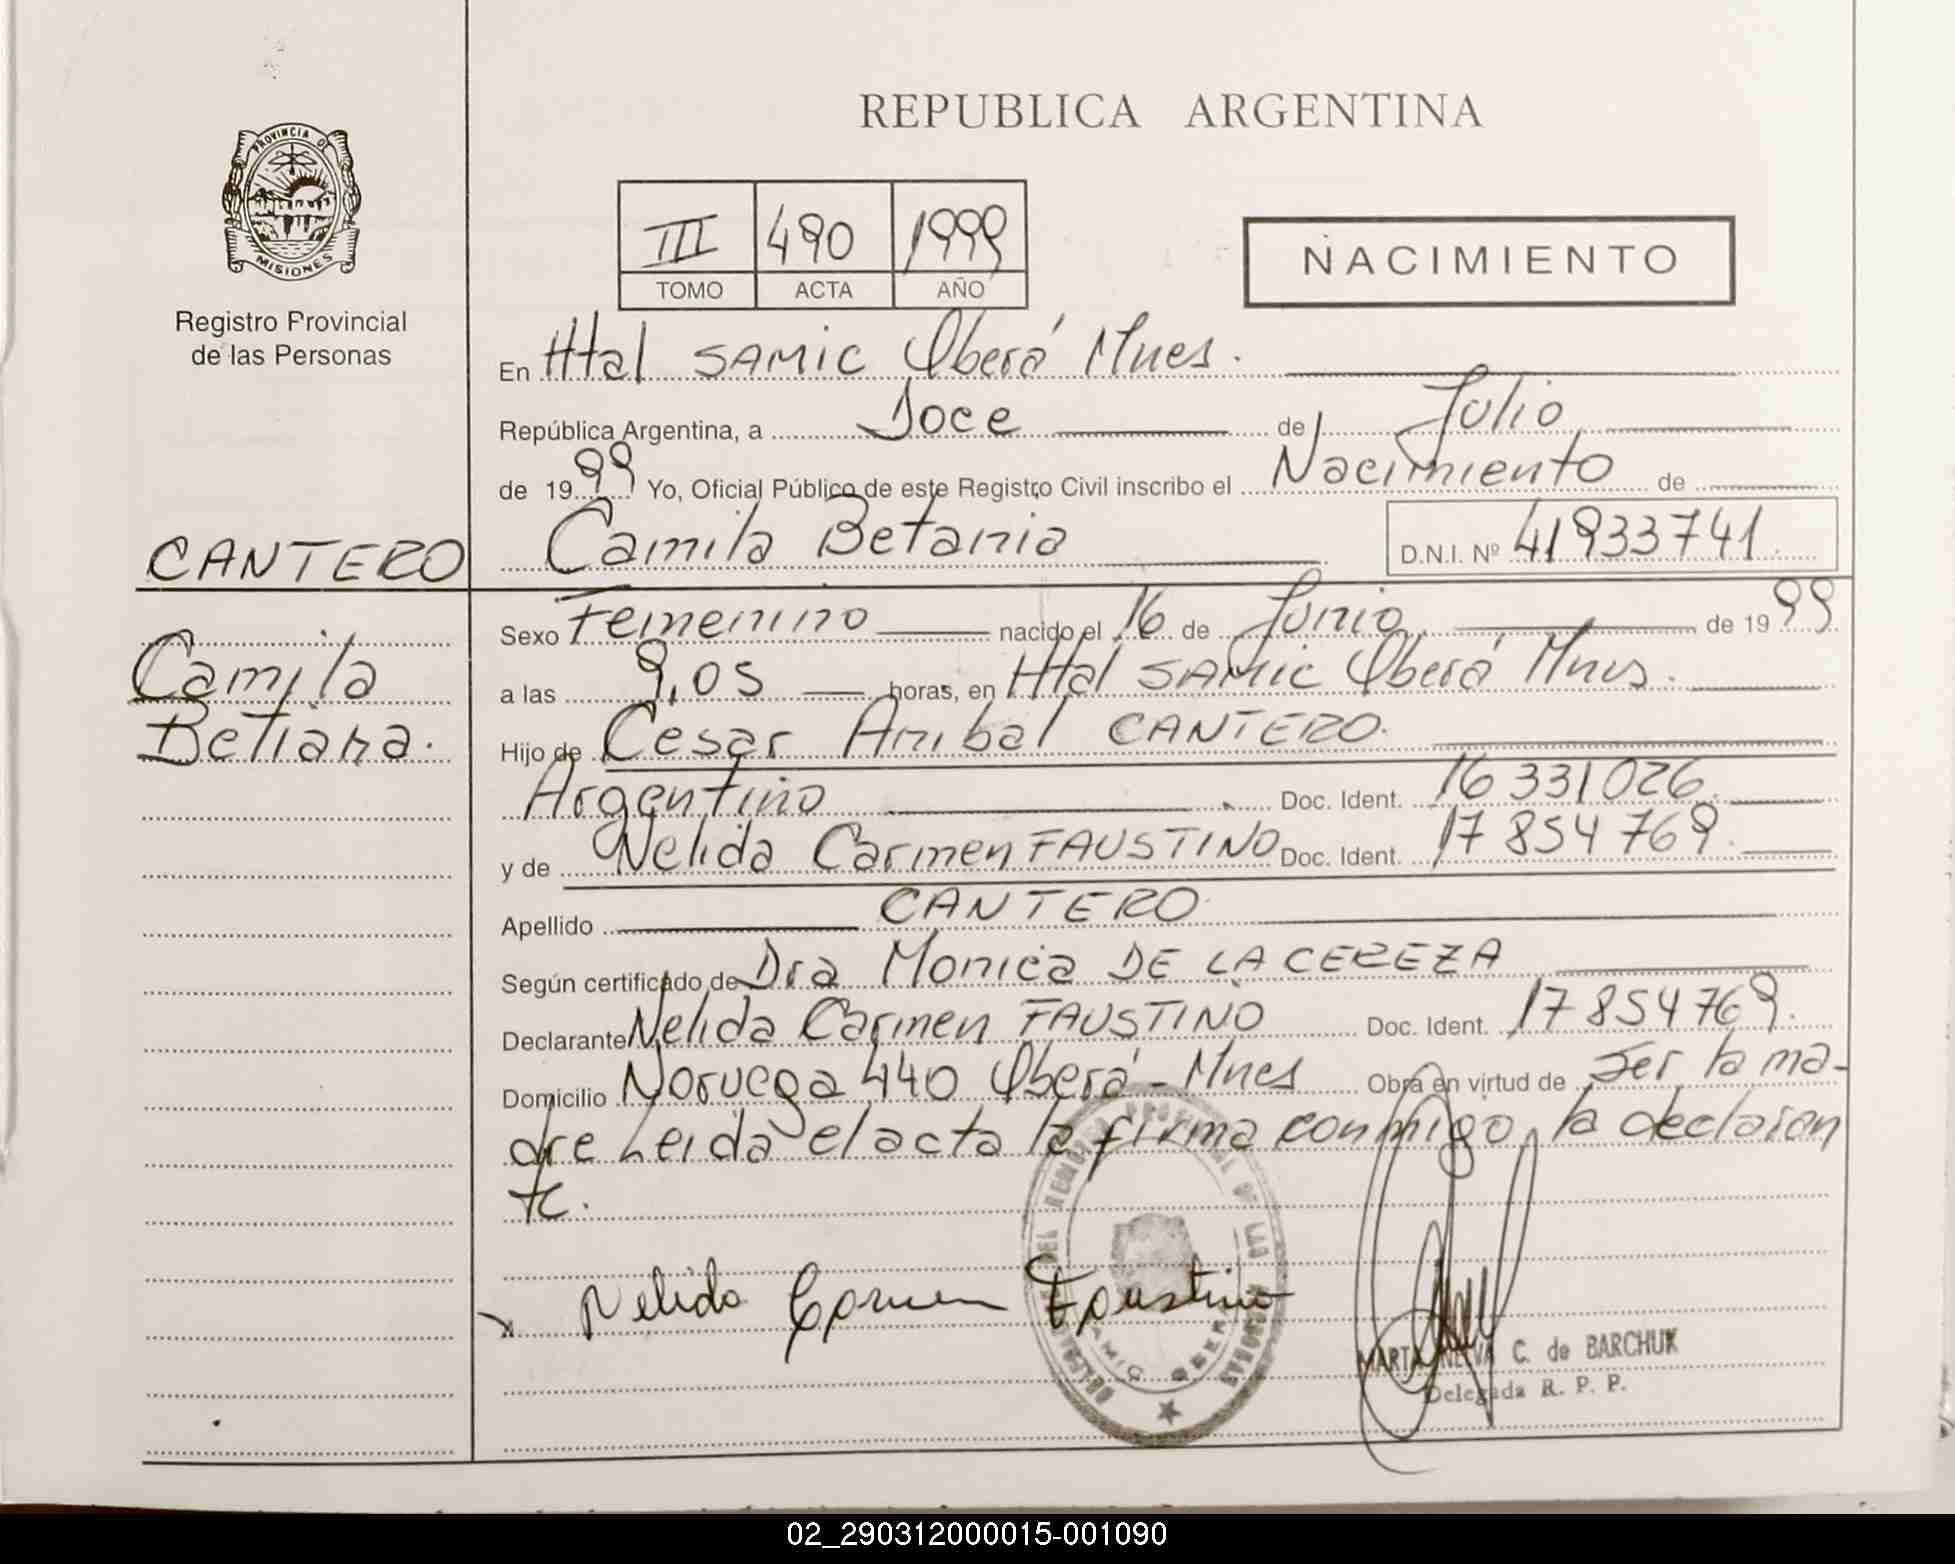 PROVINCIA DE
MISIONES
Registro Provincial
de las Personas
CANTERO
Camila
Betiana.
REPUBLICA ARGENTINA
III 490 1999
TOMO ACTA AÑO
NACIMIENTO
En Htal SAMIC Oberá Mnes.
República Argentina, a Doce de Julio
de 1999 Yo, Oficial Público de este Registro Civil inscribo el Nacimiento de
Camila Betania D.N.I. Nº 41933741.
Sexo Femenino nacido el 16 de Junio de 1999
a las 9,05 horas, en Htal SAMIC Oberá Mnes.
Hijo de Cesar Anibal CANTERO.
Argentino Doc. Ident. 16 331 026.
y de Nelida Carmen FAUSTINO Doc. Ident. 17 854 769.
Apellido CANTERO
Según certificado de Dra Monica DE LA CEREZA
Declarante Nelida Carmen FAUSTINO Doc. Ident. 17 854 769.
Domicilio Noruega 440 Oberá - Mnes Obra en virtud de Ser la ma-
dre Leida el acta la firma conmigo, la declaran
te.
Nelida Carmen Faustino
MARTA NELVA C. de BARCHUK
Delegada R. P. P.
02_290312000015-001090